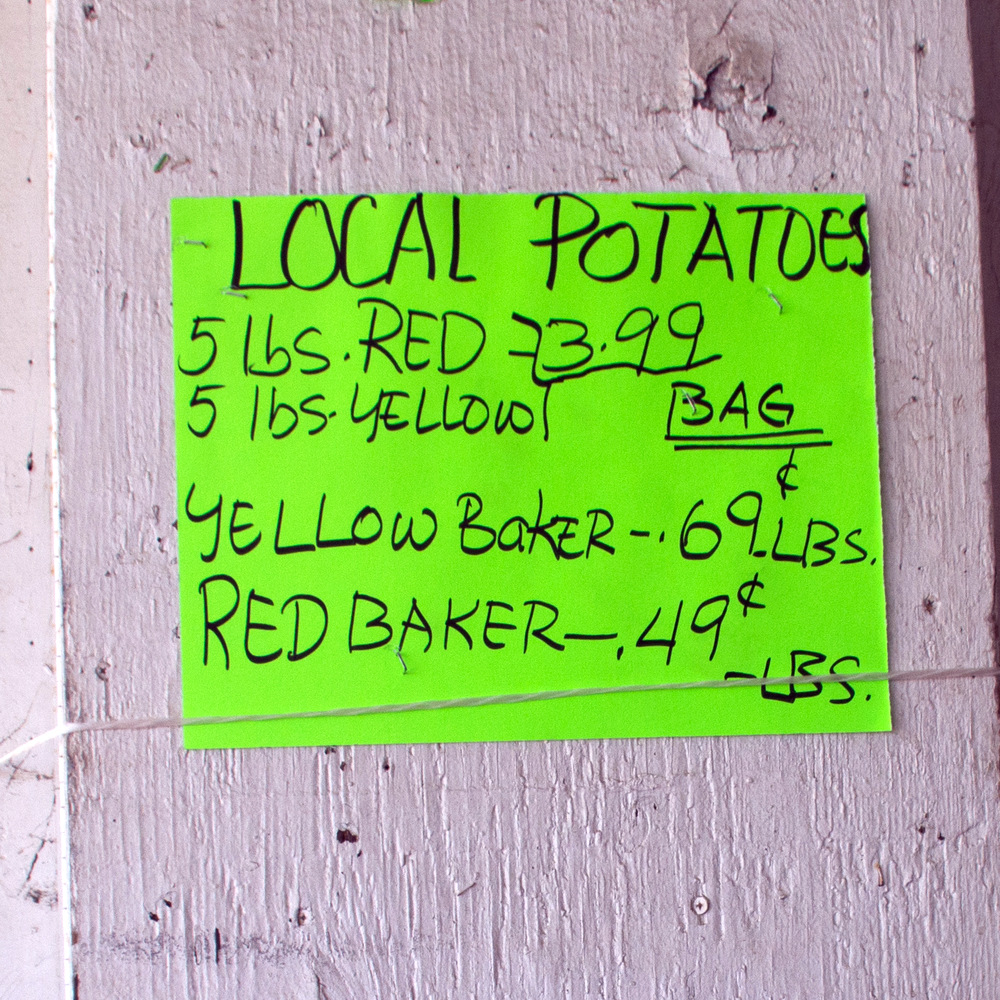 LOCAL POTATOES
5 lbs. RED - 3.99
5 lbs. YELLOW BAG
YELLOW BaKER - .69¢ - LBS.
RED BAKER - .49¢
- LBS.